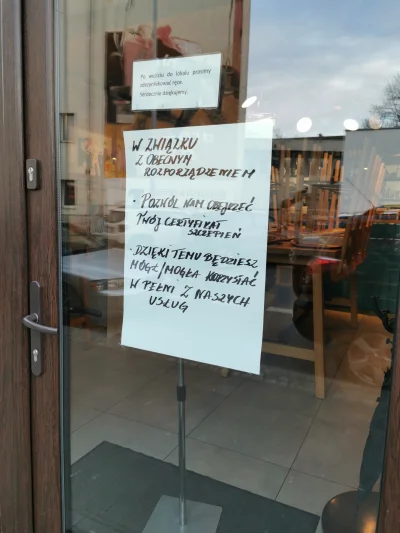 Po wejściu do lokalu prosimy
zdezynfekować ręce.
Serdecznie dziękujemy.
W ZWIĄZKU
Z OBECNYM
ROZPORZĄDZENIEM
• POZWÓL NAM OBEJRZEĆ
TWÓJ CERTYFIKAT
SZCZEPIEŃ
• DZIĘKI TEMU BĘDZIESZ
MÓGŁ/MOGŁA KORZYSTAĆ
W PEŁNI Z NASZYCH
USŁUG